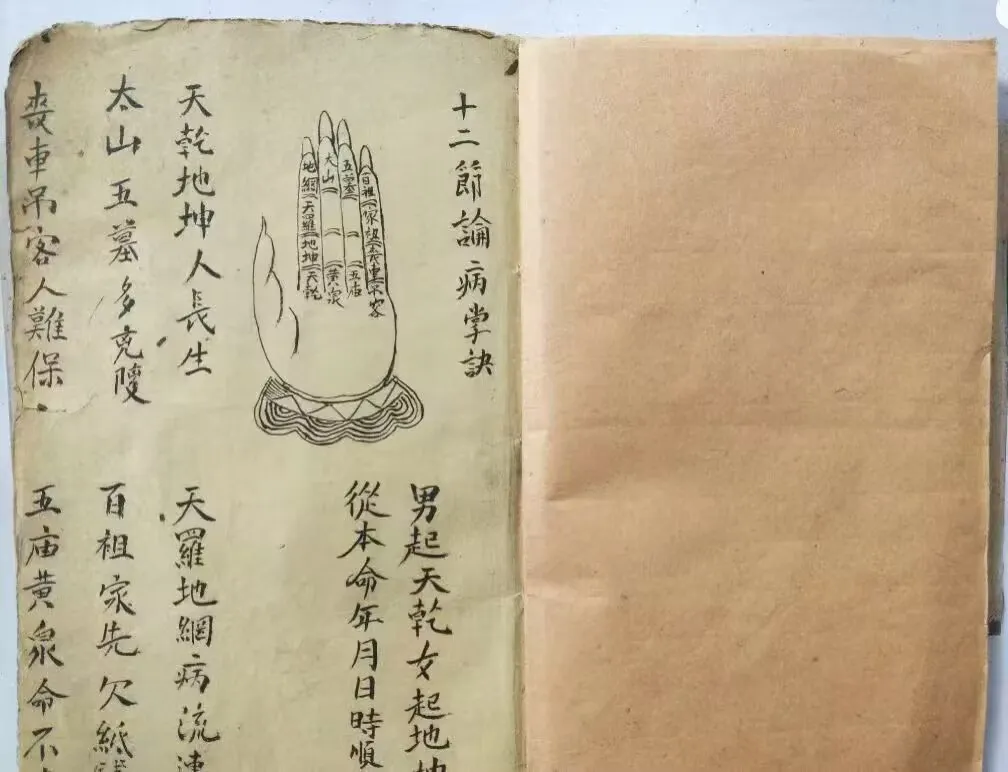 十二節論病掌訣
男起天乾女起地坤
從本命年月日時順
百祖
家祖
喪車
吊客
五墓
五庙
太山
黃泉
地網
天羅
地坤
天乾
天乾地坤人長生
天羅地網病流連
太山五墓多克
百祖家先欠紙錢
喪車吊客人難保
五庙黃泉命不